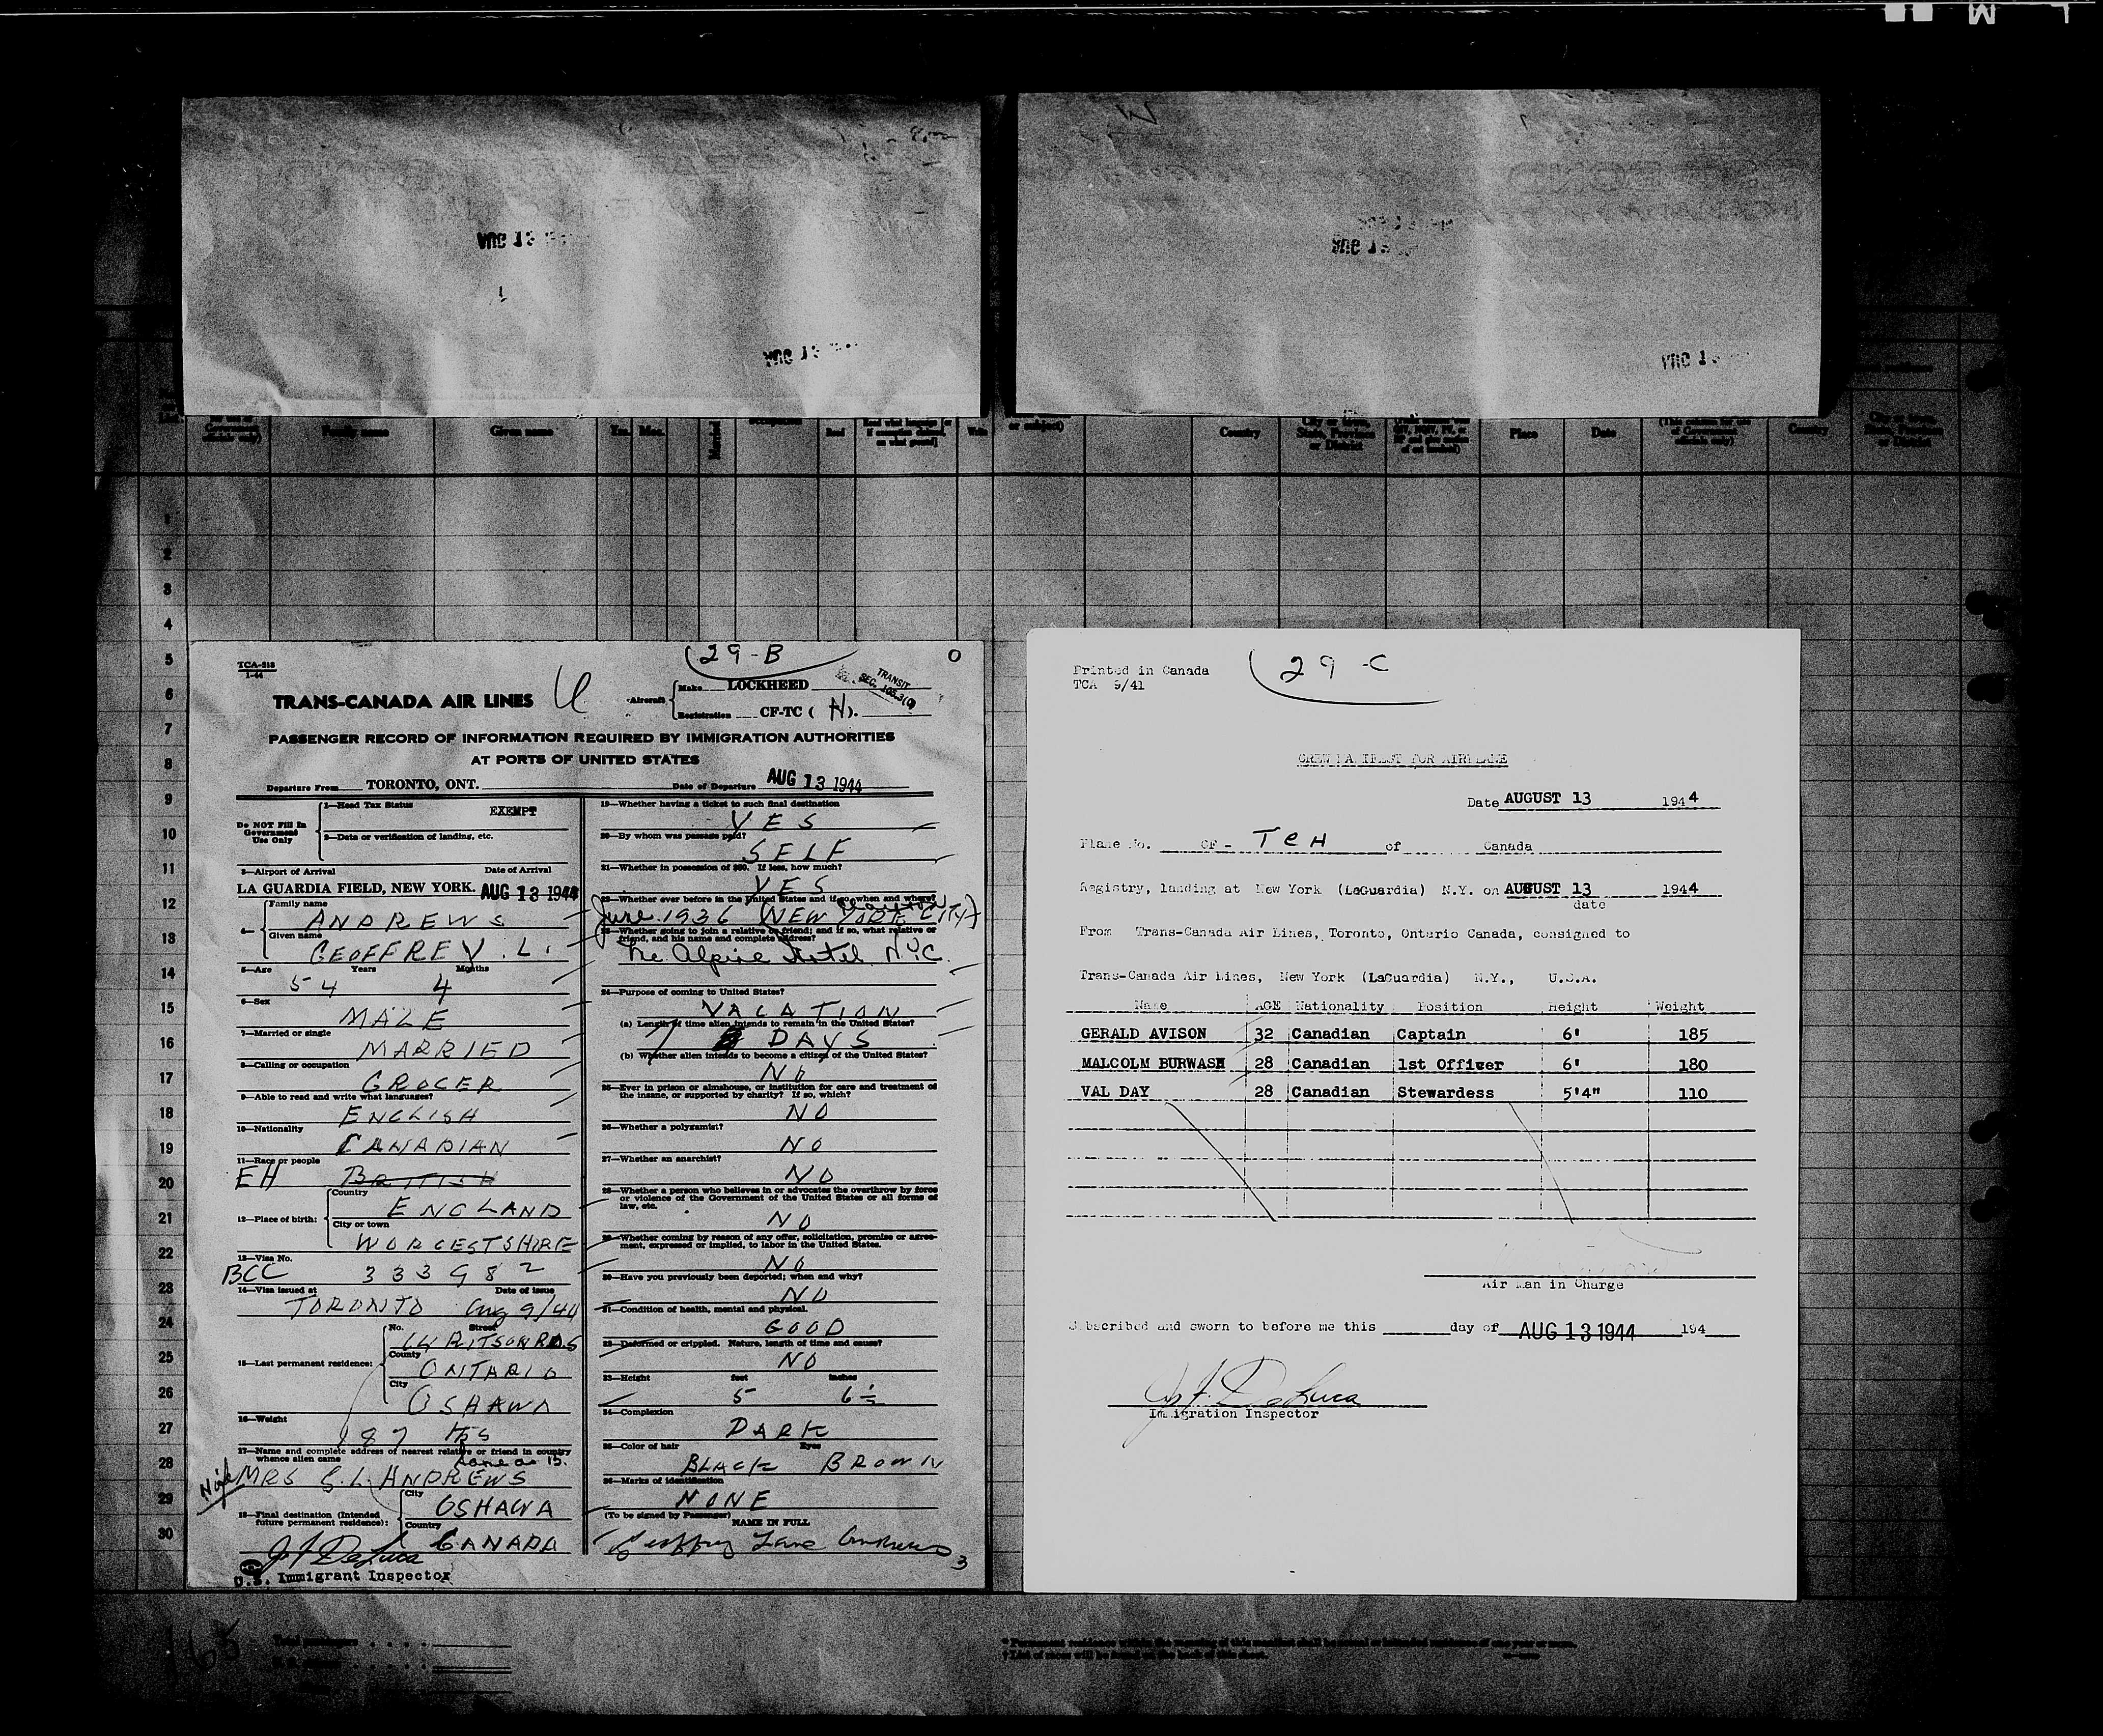 29-B
0
TCA-318
1-44
TRANS-CANADA AIR LINES
Aircraft
Make LOCKHEED
Registration CF-TC ( H ).
TRANSIT
SEC. 103.3(
PASSENGER RECORD OF INFORMATION REQUIRED BY IMMIGRATION AUTHORITIES
AT PORTS OF UNITED STATES
Departure From TORONTO, ONT. Date of Departure AUG 13 1944
Do NOT Fill In Government Use Only
1—Head Tax Status EXEMPT
2—Data or verification of landing, etc.
3—Airport of Arrival Date of Arrival
LA GUARDIA FIELD, NEW YORK. AUG 13 1944
4—
Family name
ANDREWS
Given name
GEOFFREY . L .
5—Age Years Months
54 4
6—Sex
MALE
7—Married or single
MARRIED
8—Calling or occupation
GROCER
9—Able to read and write what languages?
ENGLISH
10—Nationality
CANADIAN
11—Race or people
EH BRITISH
12—Place of birth:
Country
ENGLAND
City or town
WORCESTSHIRE
13—Visa No.
BCC 333982
14—Visa issued at Date of issue
TORONTO Aug 9/44
15—Last permanent residence:
No. Street
14 RITSON RD.S
County
ONTARIO
City
OSHAWA
16—Weight
187 lbs
17—Name and complete address of nearest relative or friend in country
whence alien came
Same as 15.
MRS G.L. ANDREWS
18—Final destination (Intended
future permanent residence):
City
OSHAWA
Country
CANADA
U.S. Immigrant Inspector
19—Whether having a ticket to such final destination
YES
20—By whom was passage paid?
SELF
21—Whether in possession of $50. If less, how much?
YES
22—Whether ever before in the United States and if so, when and where?
June 1936 (NEW YORK CITY)
23—Whether going to join a relative or friend; and if so, what relative or
friend, and his name and complete address?
The Alpine Hotel NYC.
24—Purpose of coming to United States?
VACATION
(a) Length of time alien intends to remain in the United States?
7 DAYS
(b) Whether alien intends to become a citizen of the United States?
NO
25—Ever in prison or almshouse, or institution for care and treatment of
the insane, or supported by charity? If so, which?
NO
26—Whether a polygamist?
NO
27—Whether an anarchist?
NO
28—Whether a person who believes in or advocates the overthrow by force
or violence of the Government of the United States or all forms of
law, etc.
NO
29—Whether coming by reason of any offer, solicitation, promise or agree-
ment, expressed or implied, to labor in the United States.
NO
30—Have you previously been deported; when and why?
NO
31—Condition of health, mental and physical.
GOOD
32—Deformed or crippled. Nature, length of time and cause?
NO
33—Height feet inches
5 6½
34—Complexion
DARK
35—Color of hair Eyes
BLACK BROWN
36—Marks of identification
NONE
(To be signed by Passenger)
NAME IN FULL
Geoffrey Lane Andrews
3
29-C
Printed in Canada
TCA 9/41
CREW MANIFEST FOR AIRPLANE
Date AUGUST 13 1944
Plane No. CF- TCH of Canada
Registry, landing at New York (LaGuardia) N.Y. on AUGUST 13 1944
date
From Trans-Canada Air Lines, Toronto, Ontario Canada, consigned to
Trans-Canada Air Lines, New York (LaGuardia) N.Y., U.S.A.
Name AGE Nationality Position Height Weight
GERALD AVISON 32 Canadian Captain 6' 185
MALCOLM BURWASH 28 Canadian 1st Officer 6' 180
VAL DAY 28 Canadian Stewardess 5'4" 110
Air Man in Charge
Subscribed and sworn to before me this day of AUG 13 1944 194
Immigration Inspector
Family name
Given name
Country
Place
Date
Country
1
2
3
4
5
6
7
8
9
10
11
12
13
14
15
16
17
18
19
20
21
22
23
24
25
26
27
28
29
30
165